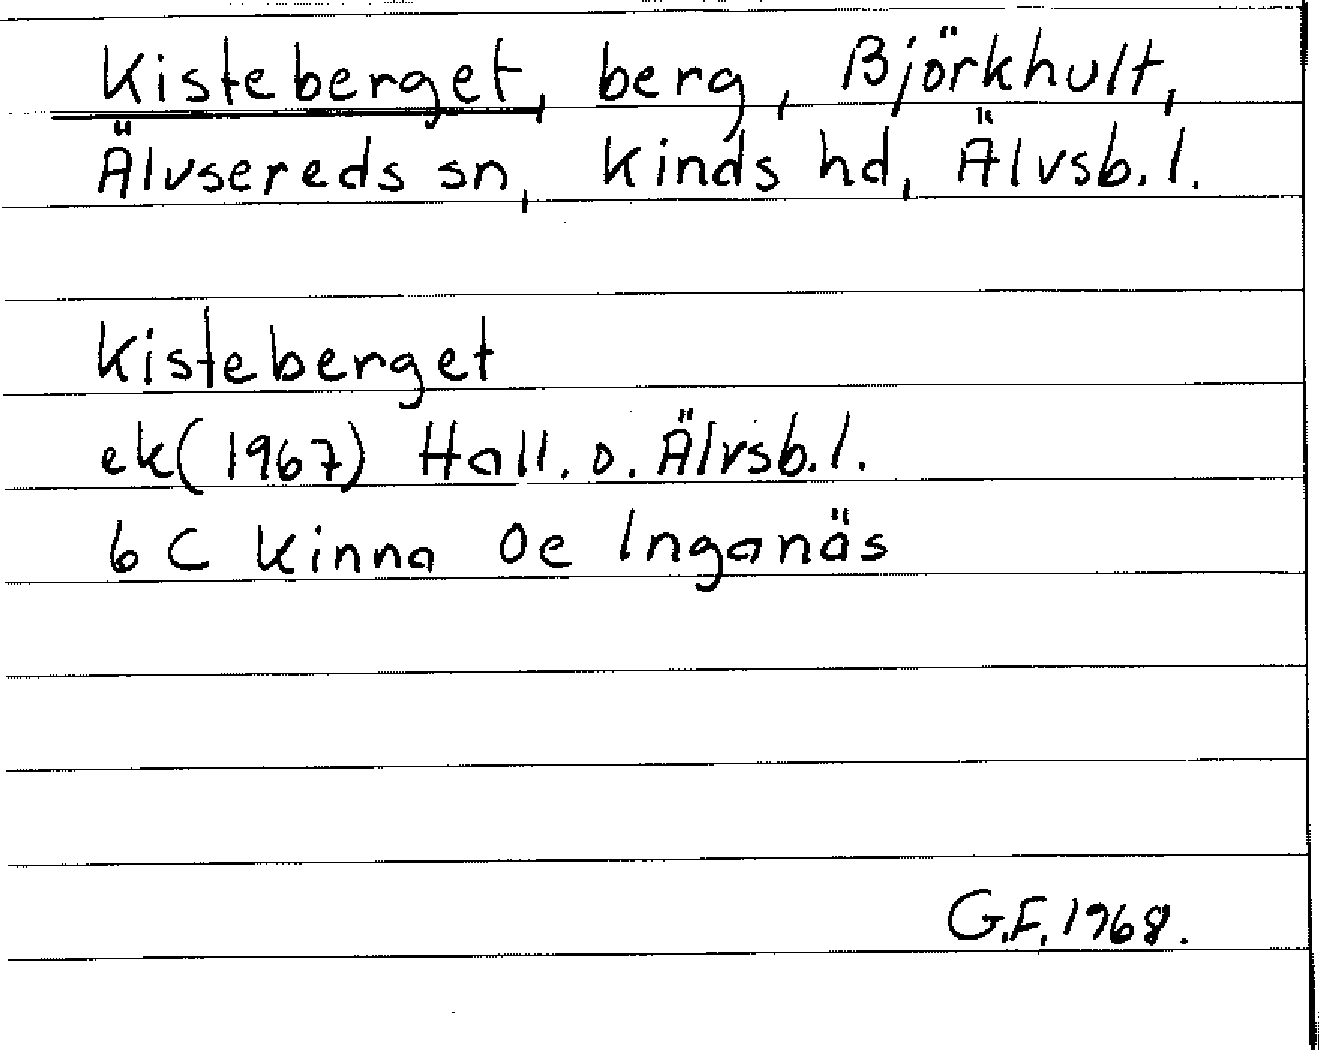 Kisteberget, berg, Björkhult,
Älvsereds sn, Kinds hd, Älvsb. l.
Kisteberget
ek(1967) Hall. o. Älvsb. l.
6 C Kinna 0e Inganäs
G.F. 1968.